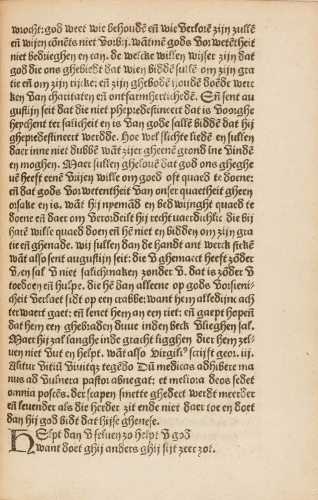 wrocht: god weet wie behoudē eñ wie verlorē zijn zullē
eñ wijen cōnēts niet vorbij. wātme gods vorwetētheit
niet bedrieghen en can. de welcke willen wijser zijn dat
god die ons ghebiedt dat wien biddē sullē om zijn gra
tie eñ om zijn rijcke; eñ zijn ghebodē houdē doēde werc
ken van charitaten eñ ontfarmherticheden. Eñ sent au
gustijn seit dat die niet phepredestineert dat is voorghe
heychent ter salicheit en is van gode sallē biddē dat hij
ghepredestineert werdde. Hoe wel slichte liedē en sullen
daer inne niet dubbē want zijer gheenē grond ine vindē
en moghen. Maer sullen ghelouē dat god ons gheghe
uē heeft eenē vrijen wille om goed oft quaed te doene;
eñ dat gods vorwetentheit van onser quaetheit gheen
orsake en is. wāt hij npemād en bedwijnght quaed te
doene eñ daer om verordeilt hij recht uaerdichlic die bij
harē wille quaed doen eñ hē niet en bidden om zijn gra
tie eñ ghenade. wij sullen dan de handt ant werck stekē
want also sent augustijn seit: die v ghemaect heeft zōder
v en sal v niet salichmaken zonder v. dat is zōder v
toedoen eñ hulpe. die hē van alleene op gods vorsieni-
cheit verlaet sidt op een crabbe: want hem alledijnc ach
terwaert gaet; eñ lenet hem an een riet: eñ gaept hopeñ
dat hem een ghebraden duue inden beck vlieghen sal.
Maer hij zal langhe inde gracht ligghen dier hem zel-
uen niet vut en helpt. wāt also Virgili⁹ scrijft geor. iij.
Alitur vitiū viuitqz tegēdo Dū medicas adhibere ma
nus ad vulnera pastor abnegat; et meliora deos sedet
omnia poscēs. der scapen smette ghedect werdt meerder
eñ leuender als die herder zit ende niet daer toe en doet
dan hij god bidt dat hijse ghenese.
Helpt dan v seluen zo helpt v god
want doet ghij anders ghij sijt zeer zot.